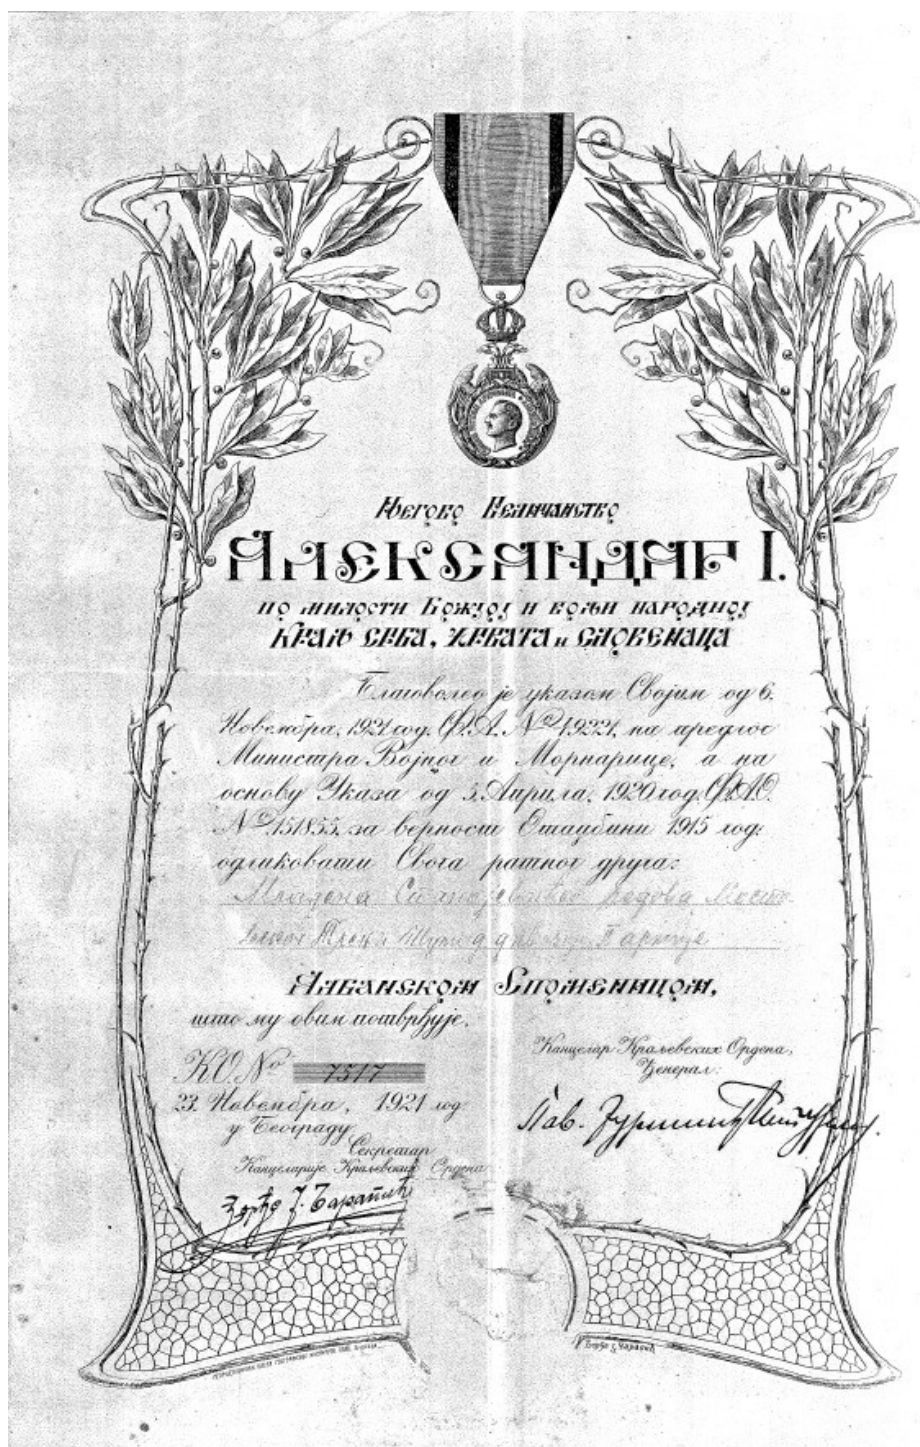 Његово Величанство
АЛЕКСАНДАР I.
по милости Божјој и вољи народној
КРАЉ СРБА, ХРВАТА и СЛОВЕНАЦА
Благоволео је указом Својим од 6.
Новембра, 1921 год. Ф.А. № 19221, на предлог
Министра Војног и Морнарице, а на
основу Указа од 5. Априла, 1920 год. Ф.А.О.
№ 151855, за верност Отаџбини 1915 год:
одликовати Свога ратног друга:
Младена
Албанском Споменицом,
што му овим потврђује.
К.О. № 7517
23. Новембра, 1921 год
у Београду
Секретар
Канцеларије Краљевских Ордена
Канцелар Краљевских Ордена,
Ђенерал:
Пав. Јуришић